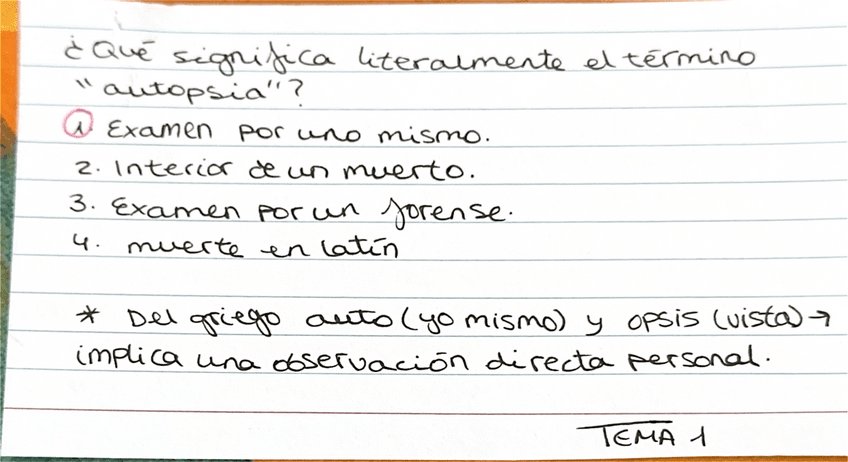 ¿Qué significa literalmente el término
"autopsia"?
1. Examen por uno mismo.
2. Interior de un muerto.
3. Examen por un forense.
4. muerte en latín
* Del griego auto (yo mismo) y opsis (vista) →
implica una observación directa personal.
TEMA 1